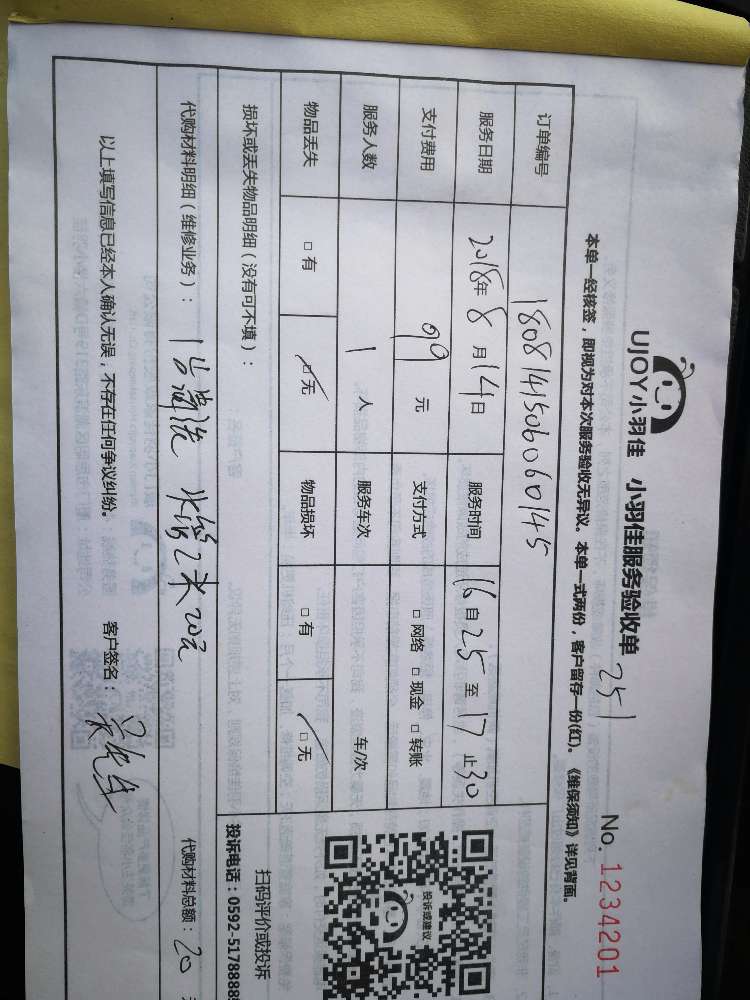 UJOY小羽佳 小羽佳服务验收单 251 No. 1234201
本单一经核签，即视为对本次服务验收无异议。本单一式两份，客户留存一份(红)。《维保须知》详见背面。
订单编号 1808141506060145
服务日期 2018年8月14日 服务时间 16自25至17止30
支付费用 99元 支付方式 □网络 □现金 □转账
服务人数 1人 服务车次 车/次
物品丢失 □有 □无 物品损坏 □有 □无
损坏或丢失物品明细（没有可不填）：
投诉或建议
扫码评价或投诉
投诉电话：0592-5178888
代购材料明细（维修业务）： 清洗 2米20元 代购材料总额：20
以上填写信息已经本人确认无误，不存在任何争议纠纷。 客户签名：